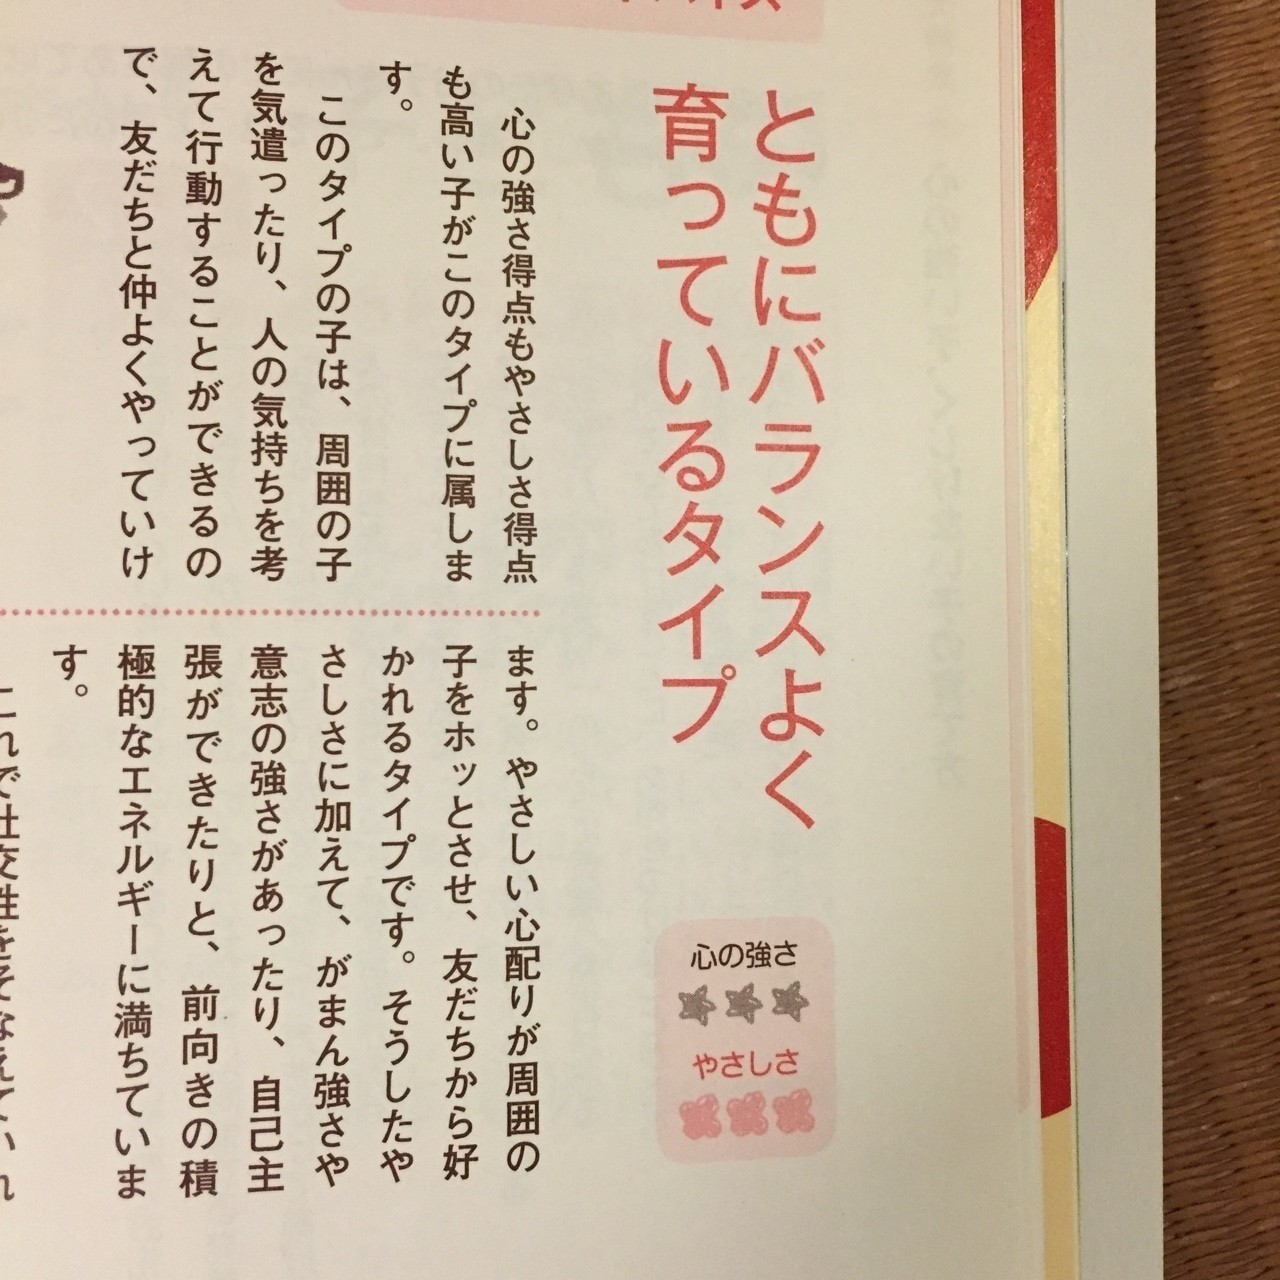 ともにバランスよく
育っているタイプ
心の強さ
やさしさ
心の強さ得点もやさしさ得点
も高い子がこのタイプに属しま
す。
このタイプの子は、周囲の子
を気遣ったり、人の気持ちを考
えて行動することができるの
で、友だちと仲よくやっていけ
ます。やさしい心配りが周囲の
子をホッとさせ、友だちから好
かれるタイプです。そうしたや
さしさに加えて、がまん強さや
意志の強さがあったり、自己主
張ができたりと、前向きの積
極的なエネルギーに満ちていま
す。
これで社交性をそなえていれ